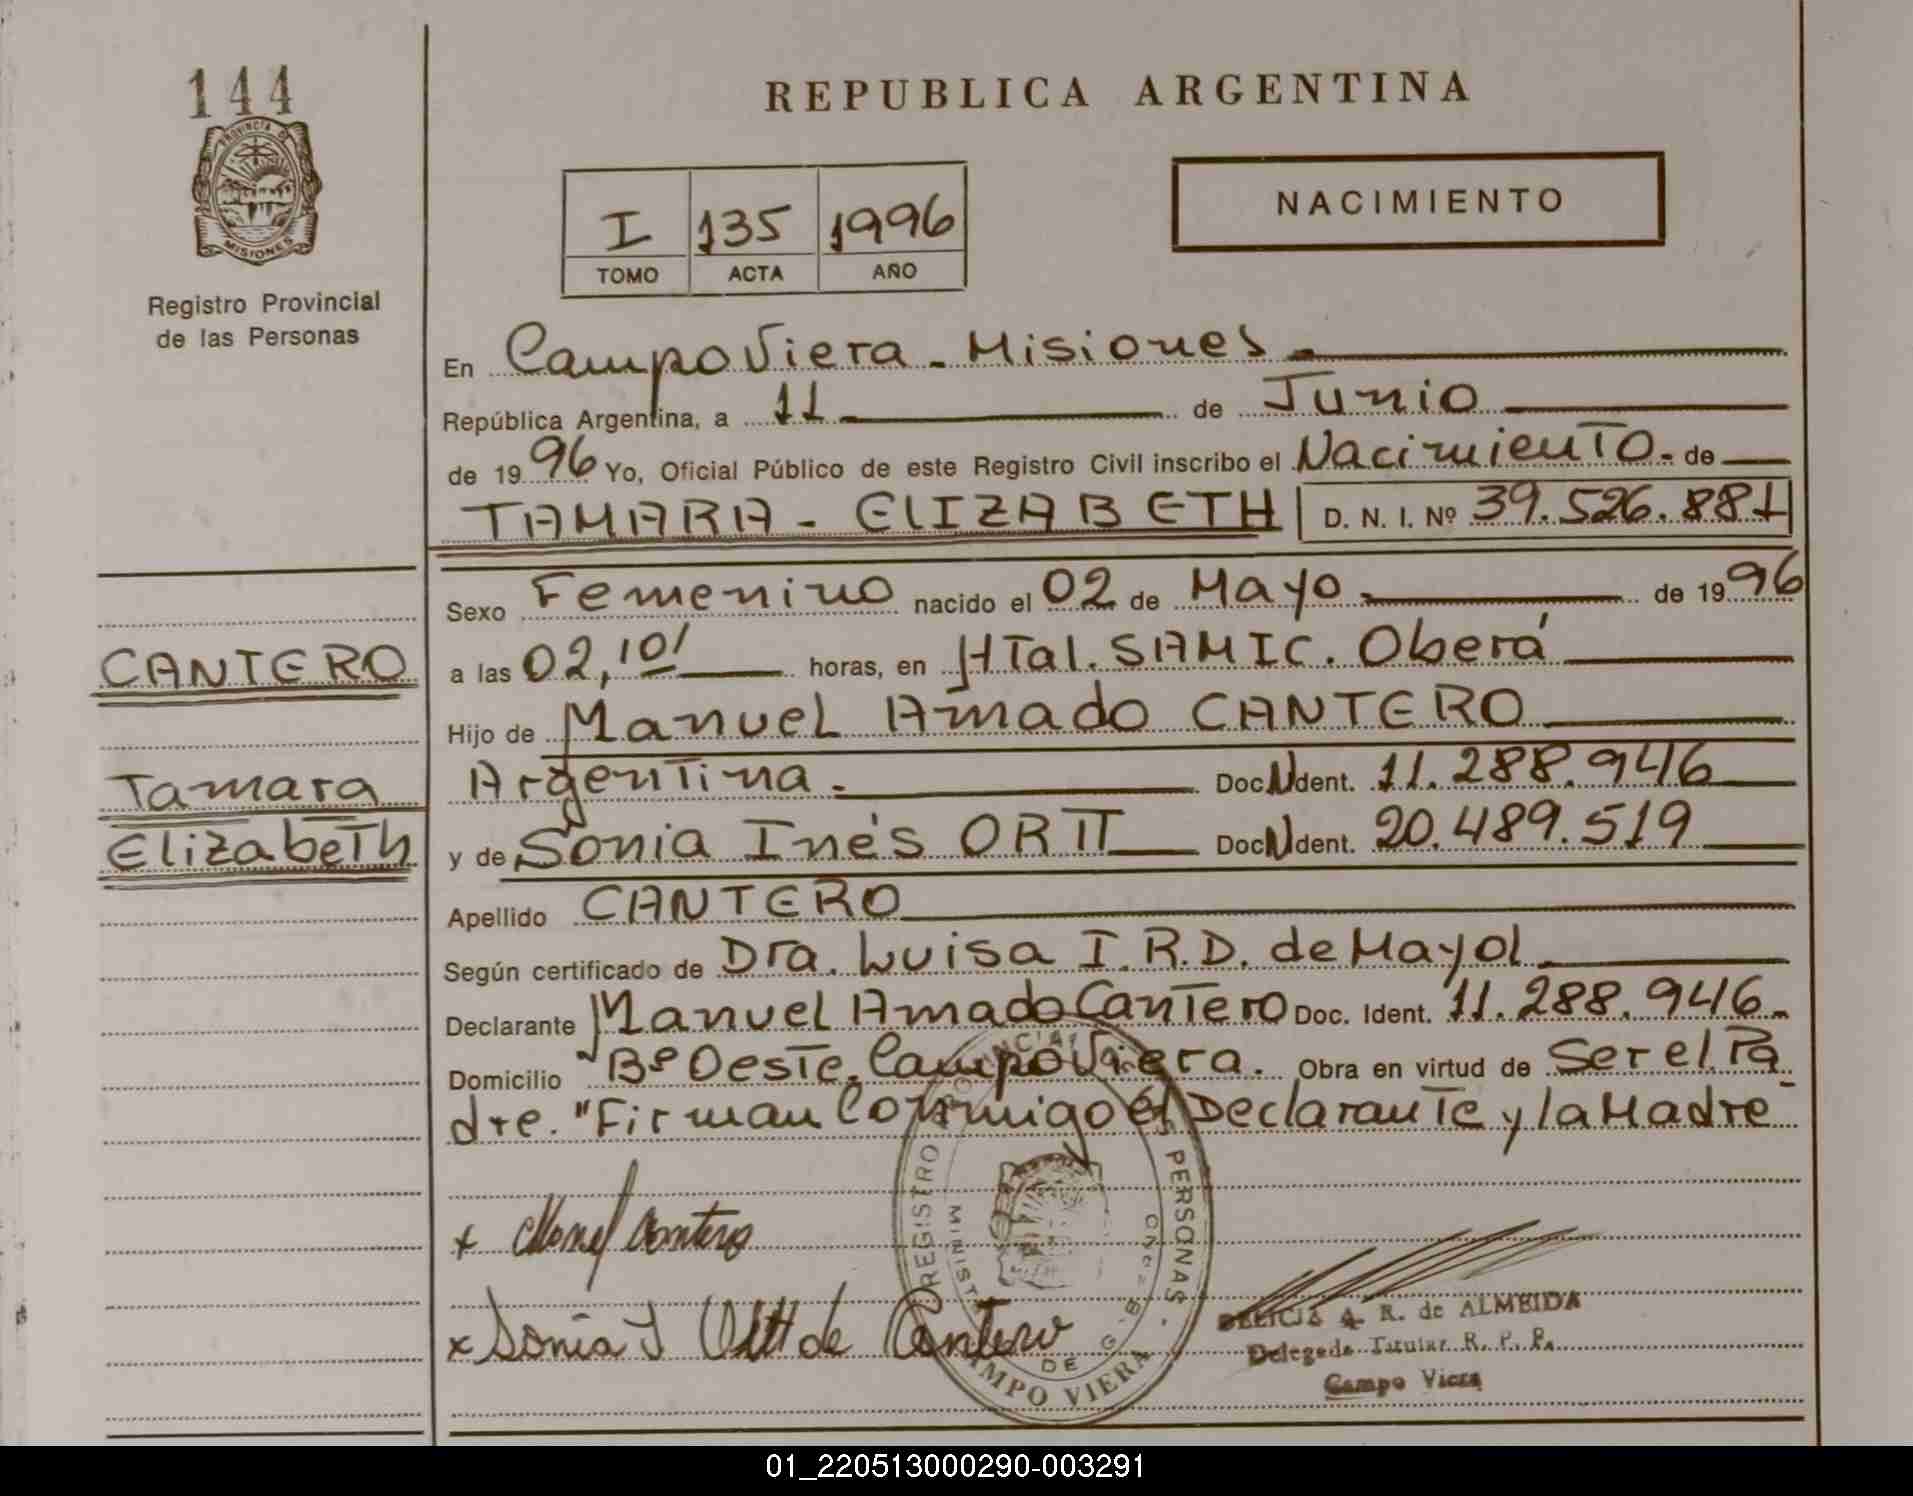 144
PROVINCIA DE
MISIONES
Registro Provincial
de las Personas
REPUBLICA ARGENTINA
I 135 1996
TOMO ACTA AÑO
NACIMIENTO
En Campo Viera - Misiones -
República Argentina, a 11 - de Junio
de 1996 Yo, Oficial Público de este Registro Civil inscribo el Nacimiento - de
TAMARA - ELIZABETH D. N. I. Nº 39.526.881
Sexo Femenino nacido el 02 de Mayo - de 1996
CANTERO
a las 02,10' horas, en HTal. SAMIC. Oberá
Hijo de Manuel Amado CANTERO
Tamara
Elizabeth
Argentina - Doc N Ident. 11.288.946
y de Sonia Inés ORTT Doc N Ident. 20.489.519
Apellido CANTERO
Según certificado de Dra. Luisa I.R.D. de Mayol
Declarante Manuel Amado Cantero Doc. Ident. 11.288.946-
Domicilio Bº Oeste. Campo Viera. Obra en virtud de Ser el Pa
dre. "Firman Conmigo el Declarante y la Madre
REGISTRO PERSONAS
x Cantero
x Sonia I de Cantero
DE
CAMPO VIERA
DELICIA A. R. de ALMEIDA
Delegada Titular R. P. P.
Campo Viera
01_220513000290-003291